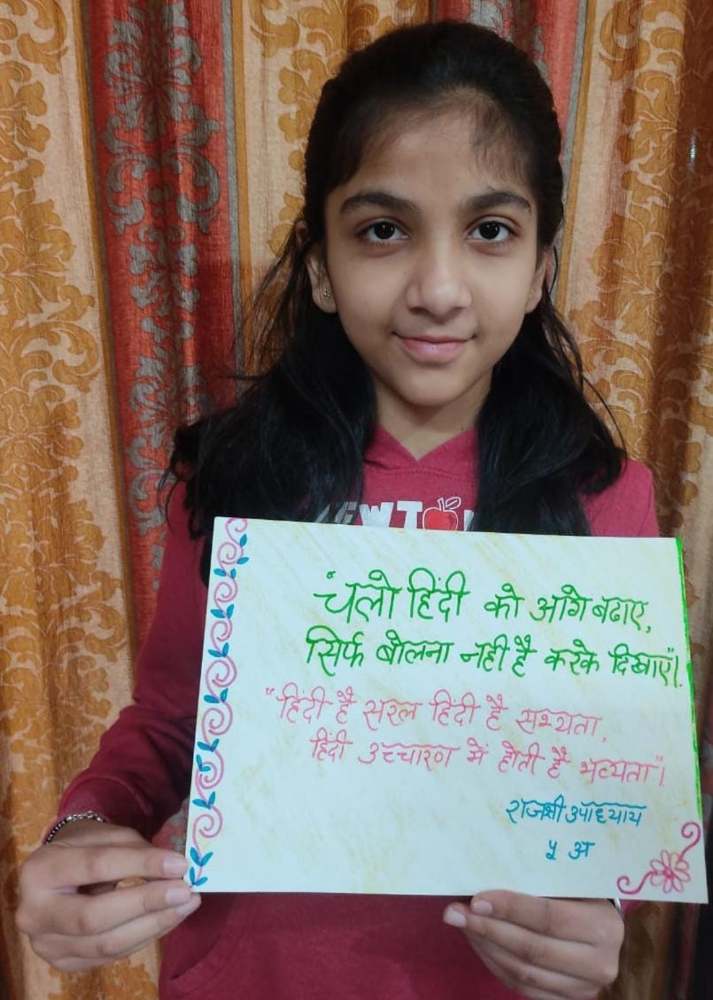 EWT
चंलो हिंदी को आगे बढाए,
सिर्फ बोलना नही है करके दिखाएँ।
"हिंदी है सरल हिंदी है सभ्यता,
हिंदी उच्चारण में होती है भव्यता"।
राजश्री उपाध्याय
५ अ